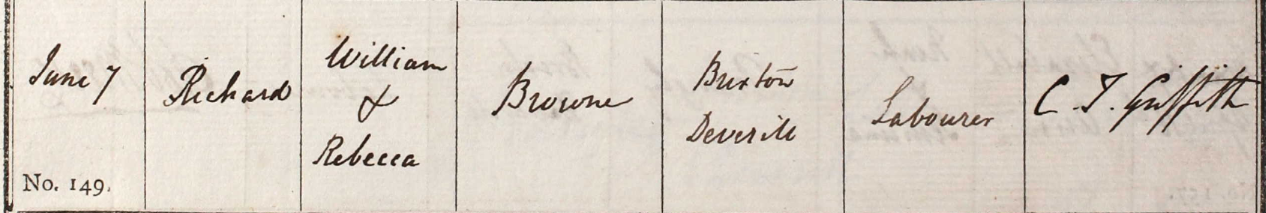 June 7
Richard
William
&
Rebecca
Browne
Brixton
Deverill
Labourer
C. T. Griffith
No. 149.